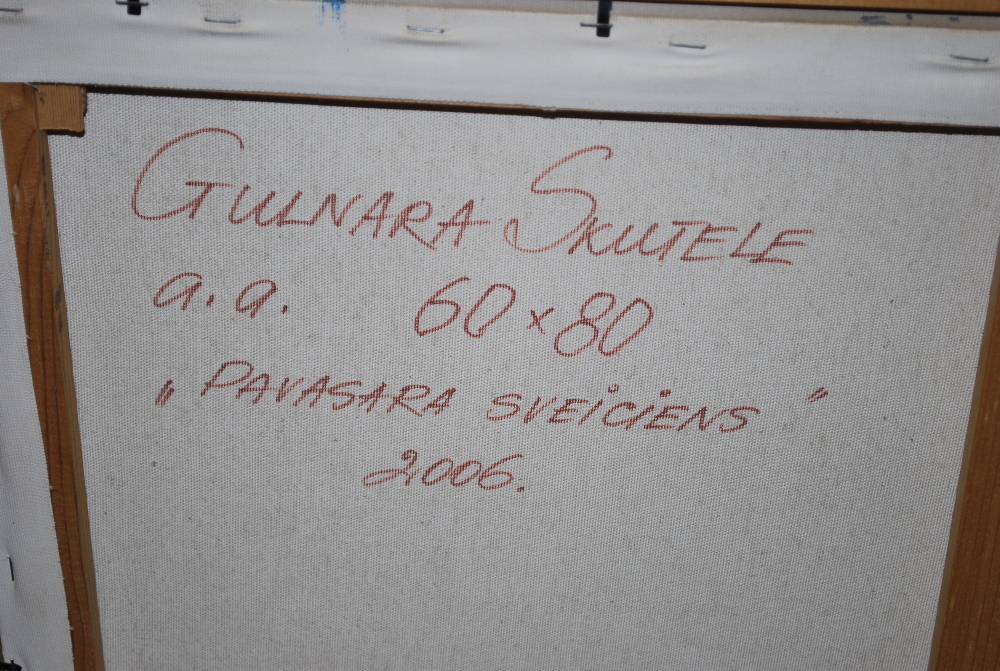 GULNARA SKUTELE
a.a. 60 x 80
„PAVASARA SVEICIENS"
2006.